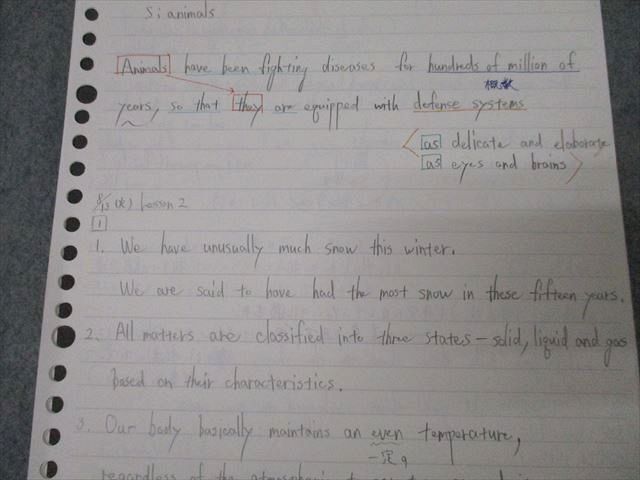 S; animals
Animals have been fighting diseases for hundreds of million of
概数
years, so that they are equipped with defense systems
as delicate and elaborate
as eyes and brains
8/13 (火) Lesson 2
1
1. We have unusually much snow this winter.
We are said to have had the most snow in these fifteen years.
2. All matters are classified into three states - solid, liquid and gas
based on their characteristics.
3. Our body basically maintains an even temperature,
一定の
regardless of the